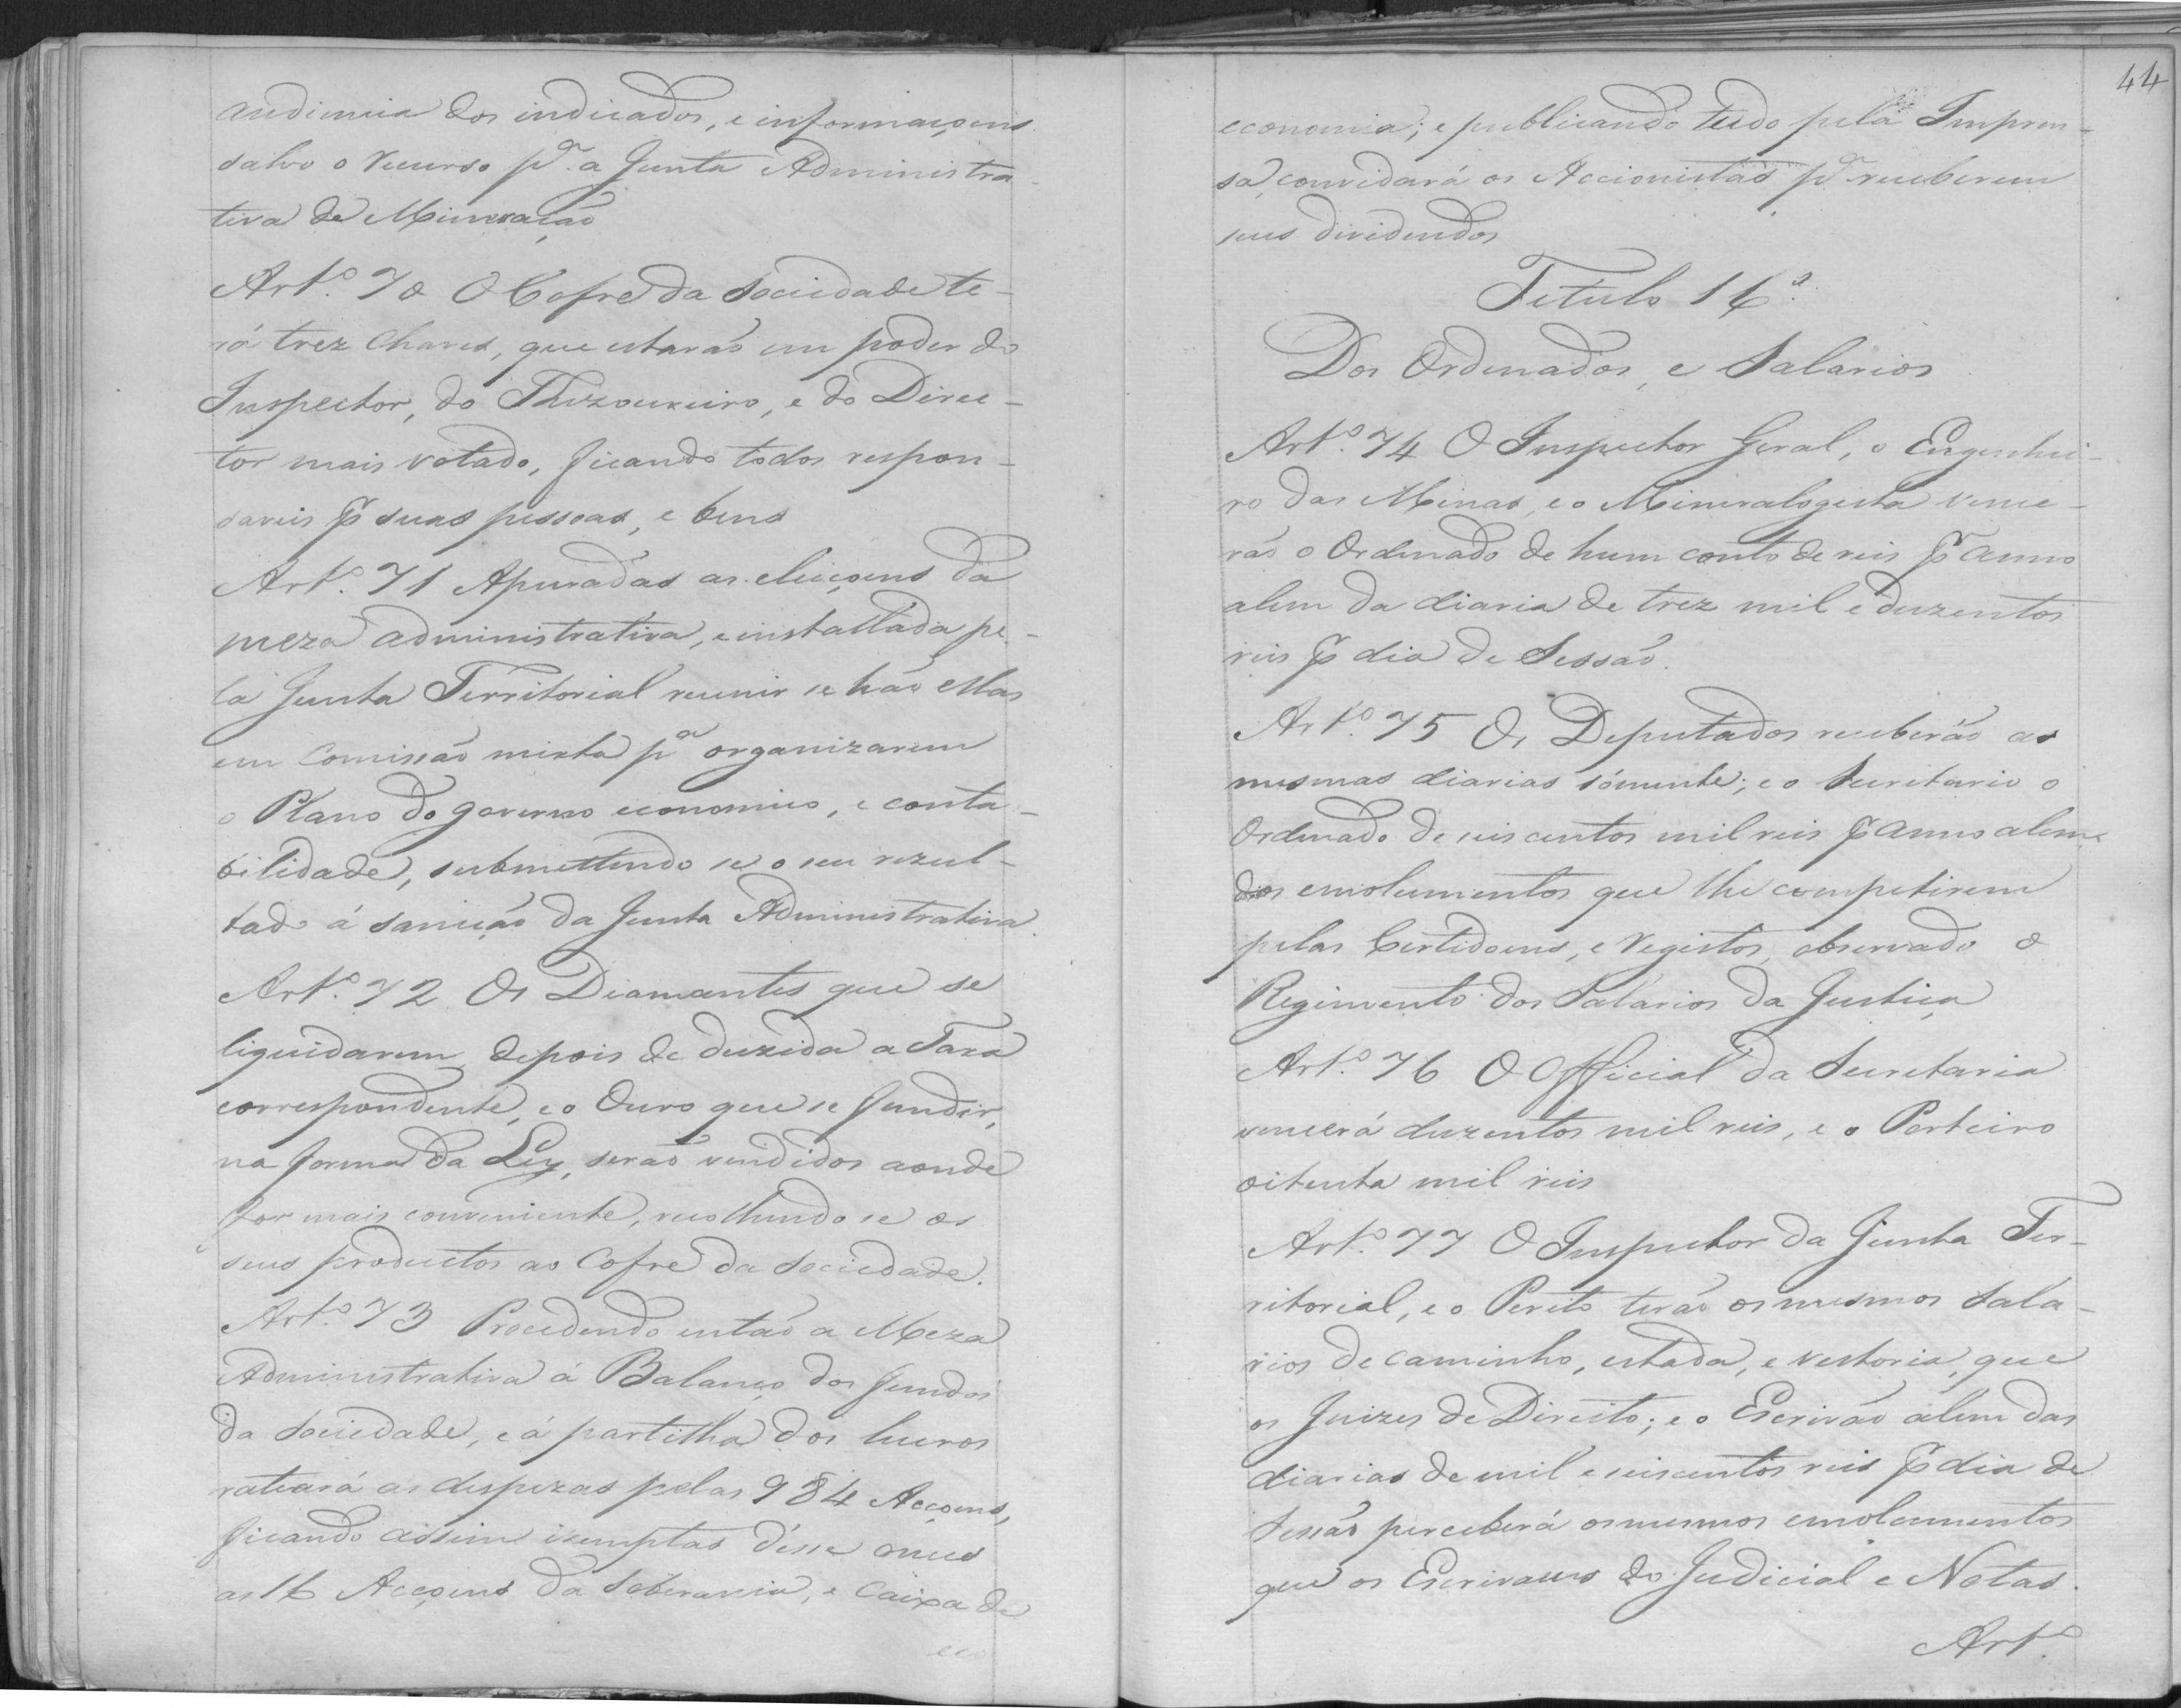 audiencia dos indicados, e informaçoens
salvo o recurso pª. a Junta Administra
tiva de Mineração
Artº. 70 O Cofre da Sociedade te-
rá trez Chaves, que estarão em poder do
Inspector, do Thezoureiro, e do Direc-
tor mais votado, ficando todos respon-
saveis pr suas pessoas, e bens
Artº. 71 Apuradas as eleiçoens da
meza administrativa, e installada pe-
la Junta Territorial reunir se hão ellas
em Comissão mixta pª organizarem
o Plano do governo economico, e conta-
bilidade, submettendo se o seu rezul-
tado á sancção da Junta Administrativa.
Artº. 72 Os Diamantes que se
liquidarem, depois de duzida a Taxa
correspondente, e o Ouro que se fundir,
na forma da Ley, serão vendidos aonde
for mais conveniente, recolhendo se os
seus productos ao Cofre da Sociedade.
Artº. 73 Procedendo então a Meza
Administrativa á Balanço dos fundos
da Sociedade, e á partilha dos lucros
rateará as despezas pelas 984 Acçoens,
ficando assim izemptas désse onus
as 16 Acçoens da Soberania, e Caixa de
eco
44
economia; e publicando tudo pela Impren-
sa, convidará os Accionistas pª. receberem
seus dividendos
Titulo 16º.
Dos Ordenados, e Salarios
Artº. 74 O Inspector Geral, o Engenhei-
ro das Minas, e o Mineralogista vence-
rão o Ordenado de hum conto de reis pr anno
alem da diaria de trez mil e duzentos
reis pr dia de Sessão.
Artº. 75 Os Deputados receberão as
mesmas diarias sómente; e o Secretario o
Ordenado de seis centos mil reis pr anno alem
dos emolumentos que lhe competirem
pelas Certidoens, e Registos, observado o
Regimento dos Salarios da Justiça
Artº. 76 O Official da Secretaria
vencerá duzentos mil reis, e o Porteiro
oitenta mil reis
Artº. 77 O Inspector da Junta Ter-
ritorial, e o Perito terão os mesmos Sala-
rios de caminho, estada, e vestoria, que
os Juizes de Direito; e o Escrivão álem das
diarias de mil e seiscentos reis pr dia de
Sessão perceberá os mesmos emolumentos
que os Escrivaens do Judicial e Notas.
Artº.